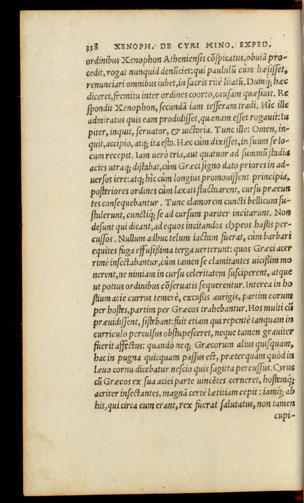 338 XENOPH. DE CYRI MINO. EXPED.
ordinibus Xenophon Atheniensis cōspicatus, obuiā pro=
cedit, rogat nunquid denūciet: qui paululū cùm hæsisset,
renunciari omnibus iubet, in sacris ritè litatū. Dumq; hæc
diceret, fremitu inter ordines coorto, causam quæsiuit. Re
spondit Xenophon, secundā iam tesseram tradi. Hic ille
admiratus quis eam prodidisset, quænam esset rogauit: Iu
piter, inquit, seruator, & uictoria. Tunc ille: Omen, in=
quit, accipio, atq; ita esto. Hæc cùm dixisset, in suum se lo=
cum recepit. Iam uerò tria, aut quatuor ad summū stadia
acies utraq; distabat, cùm Græci signo dato priores in ad=
uersos iere: atq; hic cùm longius promouissent principia,
posteriores ordines cùm laxati fluctuarent, cursu præeun
tes consequebantur. Tunc clamorem cuncti bellicum su=
stulerunt, cunctiq; se ad cursum pariter incitarunt. Non
desunt qui dicant, ad equos incitandos clypeos hastis per=
cussos. Nullum adhuc telum iactum fuerat, cùm barbari
equites fuga effusissima terga uerterunt: quos Græci acer
rimè insectabantur, cùm tamen se clamitantes uicissim mo
nerent, ne nimiam in cursu celeritatem susciperent, atque
ut potius ordinibus cōseruatis sequerentur. Interea in ho
stium acie currus temerè, excussis aurigis, partim eorum
per hostes, partim per Græcos trahebantur. Hos multi cū
præuidissent, sistebant: fuit etiam qui repentè tanquam in
curriculo perculsus obstupesceret, neque tamen grauiter
fuerit affectus: quando neq; Græcorum alius quisquam,
hac in pugna quicquam passus est, præterquàm quòd in
læuo cornu dicebatur nescio quis sagitta percussus. Cyrus
cū Græcos ex sua aciei parte uincētes cerneret, hostemq;
acriter insectantes, magnā certè lætitiam cepit: iamq; ab
his, qui circa eum erant, rex fuerat salutatus, non tamen
cupi-